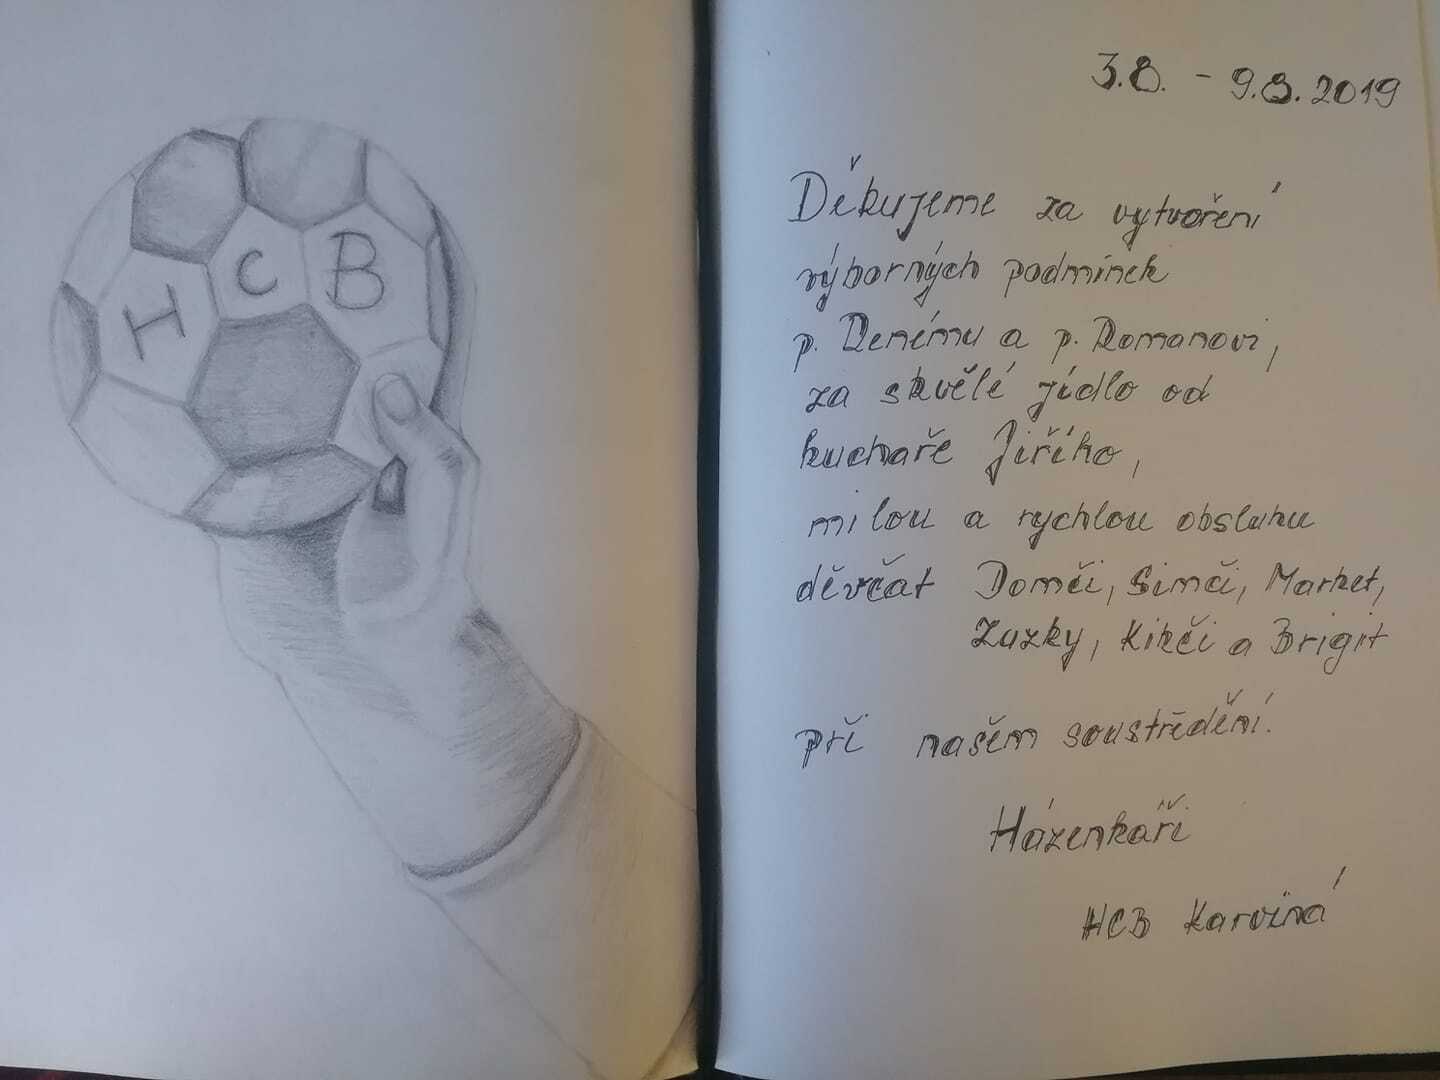 H C B
3.8. - 9.8. 2019
Děkujeme za vytvoření
výborných podmínek
p. Renému a p. Romanovi,
za skvělé jídlo od
kuchaře Jiřího,
milou a rychlou obsluhu
děvčat Domči, Simči, Market,
Zuzky, Kikči a Brigit
při našem soustředění.
Házenkáři
HCB Karviná